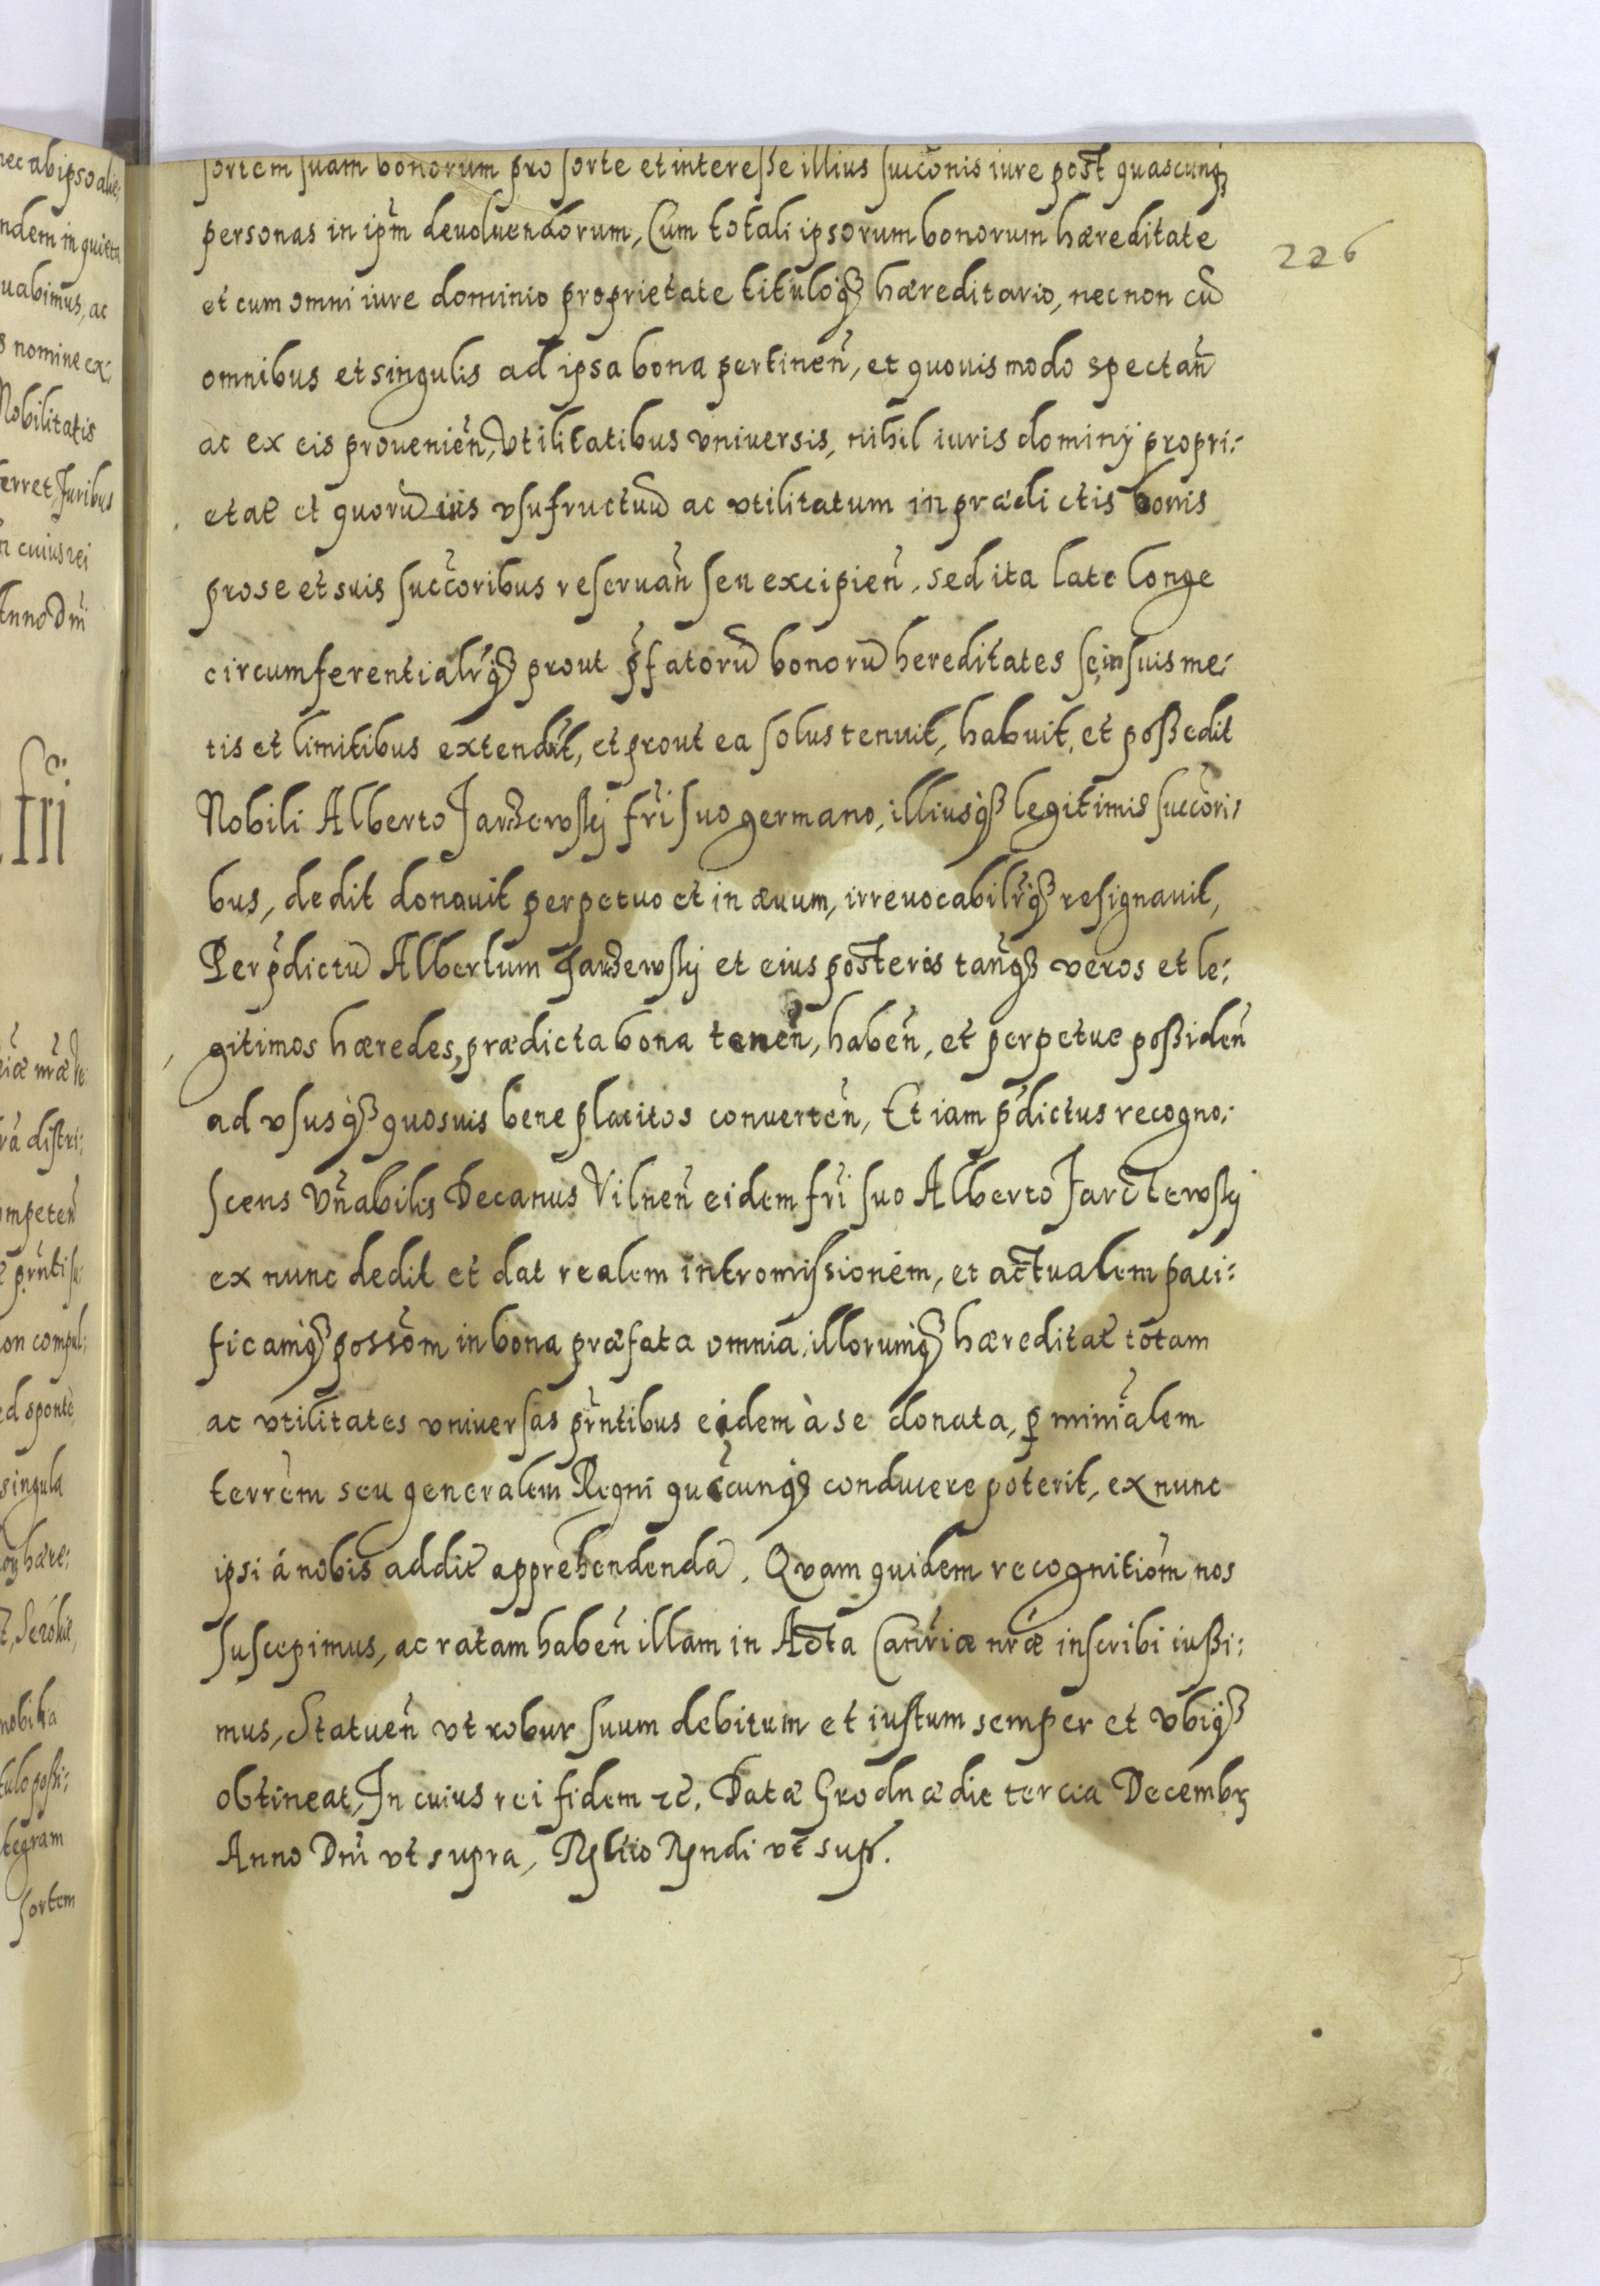 sortem suam bonorum pro sorte et interesse illius succonis iure post quascunq3
personas in ipm̃ deuoluendorum, Cum totali ipsorum bonorum hæreditate
226
et cum omni iure dominio proprietate tituloq3 hæreditario, nec non cũ
omnibus et singulis ad ipsa bona pertineñ, et quouis modo spectañ
ac ex eis prouenieñ, Vtilitatibus vniuersis, nihil iuris dominij propri:
etat̃ et quorũ uis vsufructuũ ac vtilitatum in prædictis bonis
pro se et suis succoribus reseruañ seu excipieñ. sed ita late longe
circumferentialr̃q3 prout p̃fatorũ bonorũ hereditates se in suis me:
tis et limitibus extendũt, et prout ea solus tenuit, habuit, et possedit
Nobili Alberto Jarzewskj fri suo germano, illiusq3 legitimis succori:
bus, dedit donauit perpetuo et in æuum, irreuocabilr̃q3 resignauit,
Per p̃dictũ Albertum Jarzewskj et eius posteros tanq3 veros et le:
gitimos hæredes, prædicta bona teneñ, habeñ, et perpetue possideñ
ad vsusq3 quosuis bene placitos conuerteñ, Et iam p̃dictus recogno:
scens Vñabilis Decanus Vilneñ eidem fri suo Alberto Jarczewskj
ex nunc dedit et dat realem intromissionem, et actualem paci:
ficamq3 possõm in bona præfata omnia, illorumq3 hæreditat̃ totam
ac vtilitates vniuersas prñtibus eidem à se donata, p minr̃ialem
terrẽm seu generalem Regni quẽcunq3 conducere poterit, ex nunc
ipsi á nobis addit̃ apprehendenda. Quam quidem recognitiõm nos
suscepimus, ac ratam habeñ illam in Acta Canr̃iæ nr̃æ inscribi iussi:
mus, Statueñ vt robur suum debitum et iustum semper et vbiq3
obtineat, In cuius rei fidem ꝛc̃. Datæ Grodnæ die tercia Decembr
Anno Dni vt supra, Rltio Rndi vt sup̃.